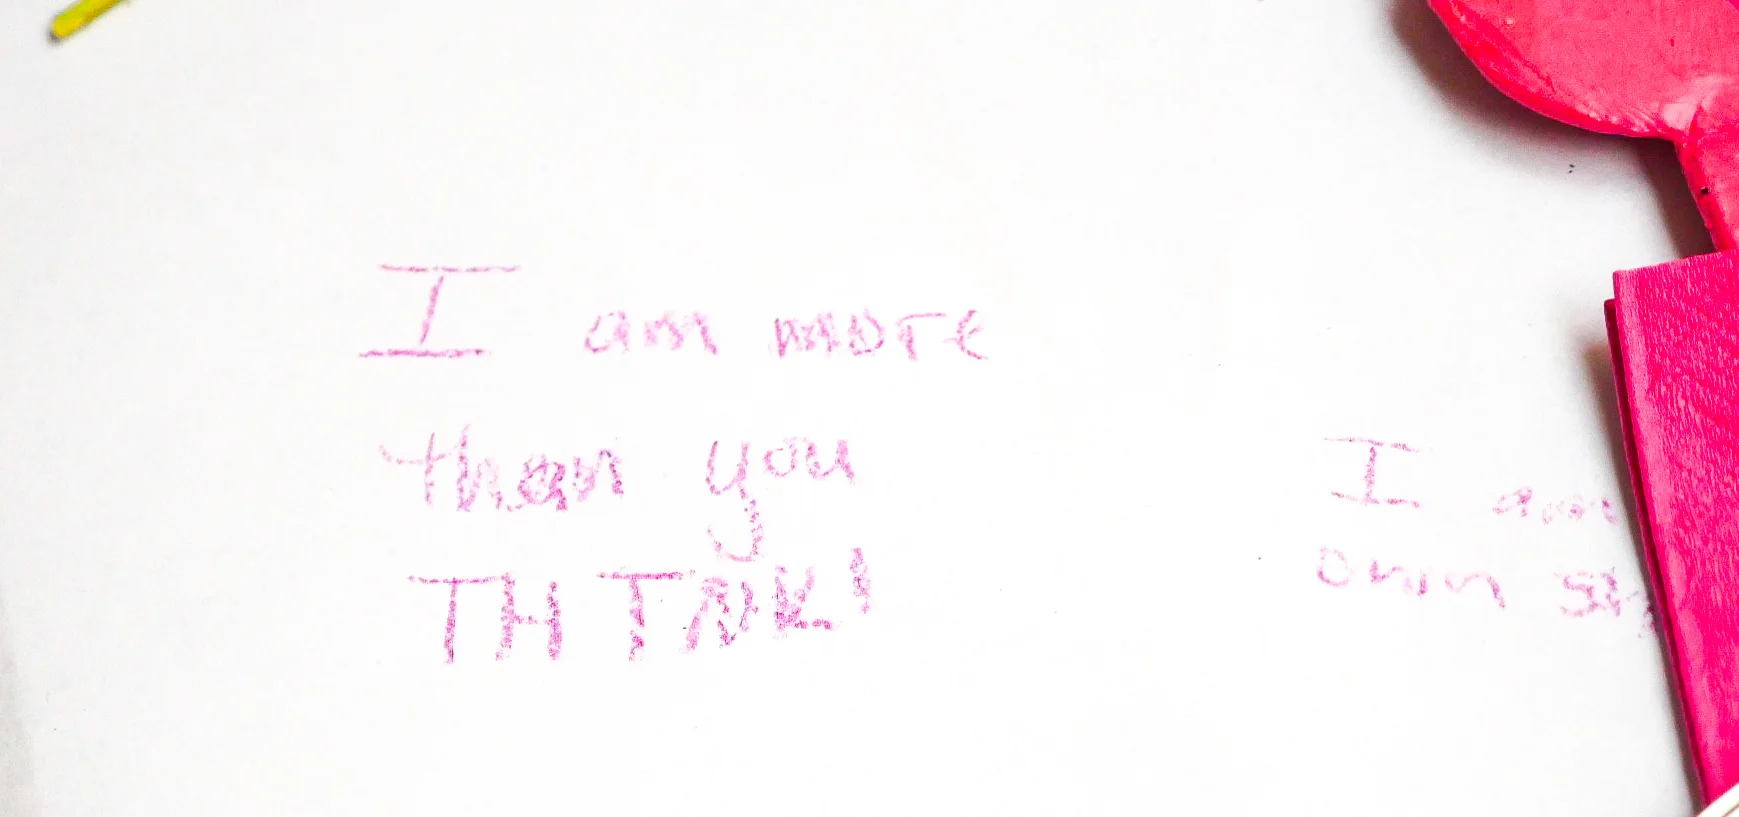 I am more
than you
THINK!
I am
own